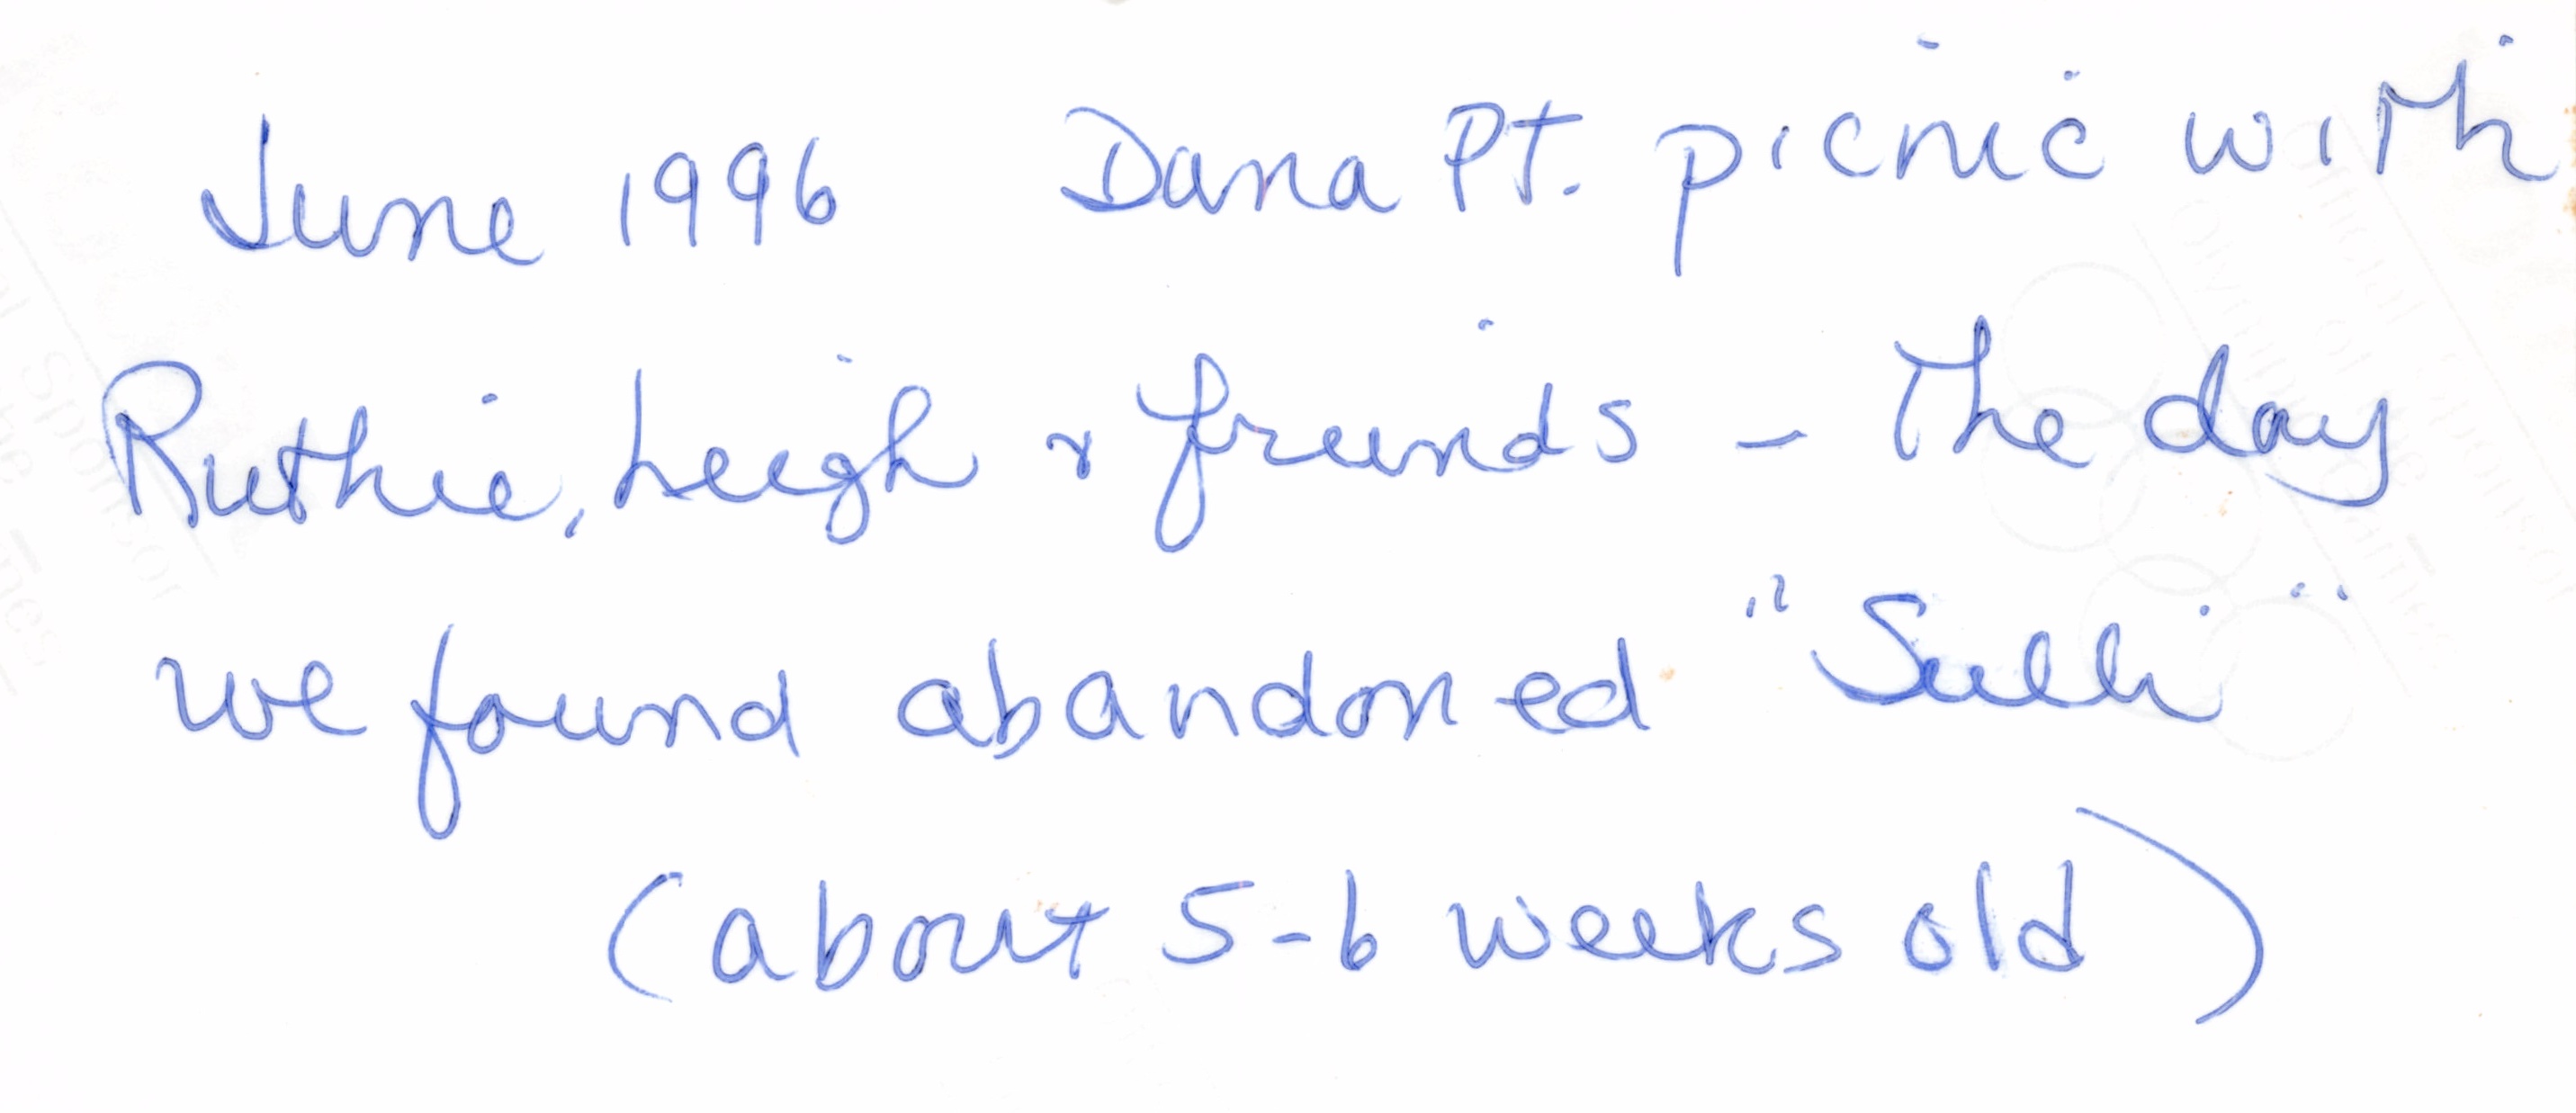 June 1996 Dana Pt. picnic with
Ruthie, Leigh & friends - The day
we found abandoned "Sulli"
(about 5-6 weeks old)